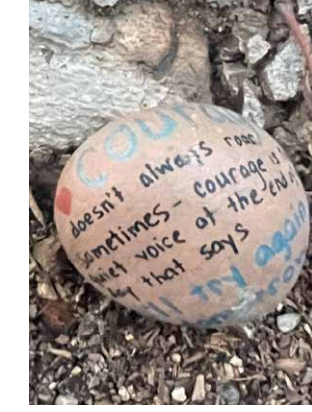 COUR
doesn't always roar
Sometimes - courage is
quiet voice at the end of
that says
I'll try again